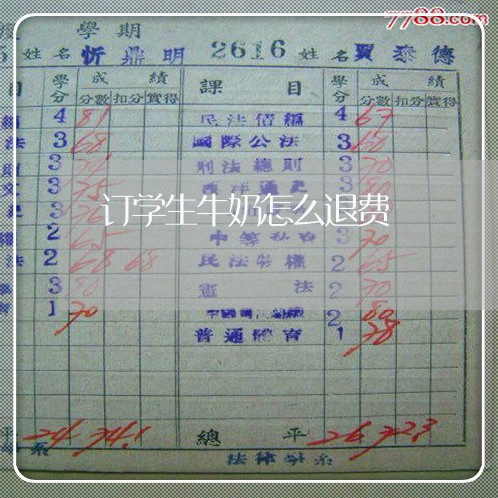 7788.com
學期
姓名 忻鼎明 2616 姓名 賈泰德
目 學分 成績 課目 學分 成績
分數 扣分 實得 分數 扣分 實得
4 81 民法債編 4 67
法 3 68 國際公法 3 60
3 刑法總則 3 70
3 75 西洋通史 3
訂学生牛奶怎么退费
2 65 3 70
法 2 68 68 民法物權 2 65
3 憲法 2 70
1 70 2 80
普通體育 1 78
平 24 74.1 總平 26 72.3
系 法律學系